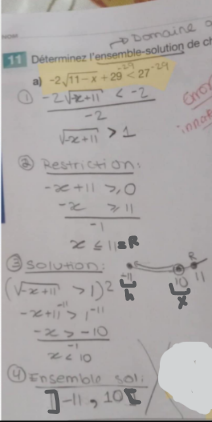 Domaine
11 Déterminez l'ensemble-solution de ch
-29 -29
a) -2√11-x + 29 < 27
① -2√-x+11 < -2
-2
√-x+11 > 1
② Restriction:
-x+11 ≥ 0
-x ≥ 11
-1
x ≤ 11 R
③ Solution:
(√-x+11 > 1)²
-11
-x+11 > 1 -11
-x > -10
-1
x < 10
R
-11 10 11
h x
④ Ensemble sol:
]-11, 10[